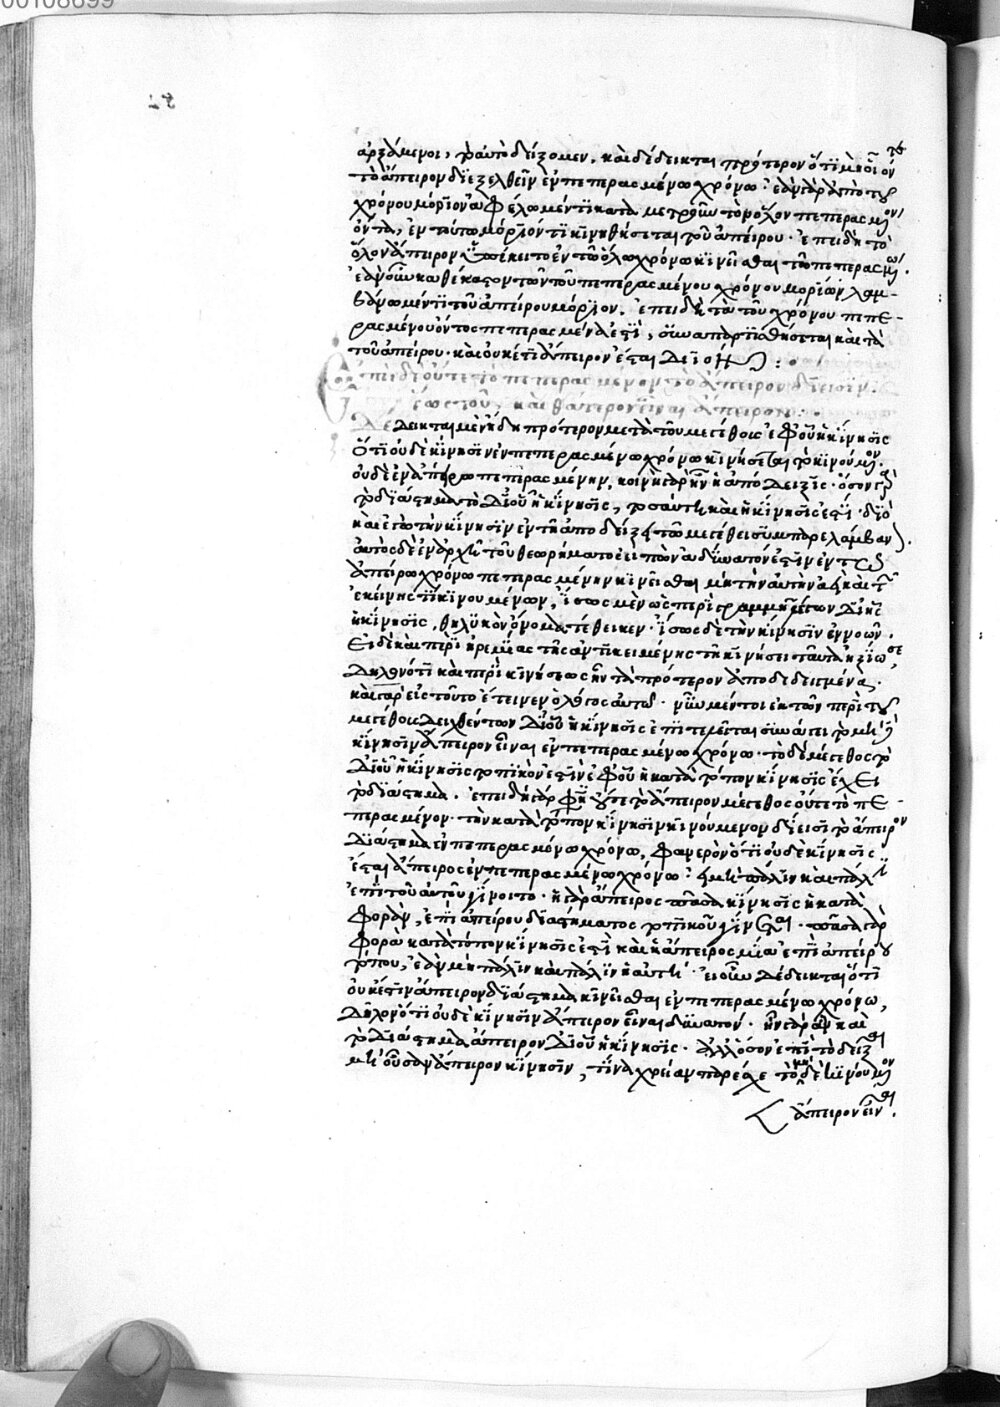 00108699
ἀρξάμενοι, τὸ αὐτὸ δείξομεν. καὶ δέδεικται πρότερον ὅτι μὴ οἷόν τε
τὸ ἄπειρον διεξελθεῖν ἐν πεπερασμένῳ χρόνῳ· ἐὰν γὰρ ἀπὸ τοῦ
χρόνου μόριον ἀφέλωμέν τι καταμετροῦν τὸν ὅλον πεπερασμένον
ὄντα, ἐν τούτῳ μόριόν τι κινηθήσεται τοῦ ἀπείρου. ἐπειδὴ τὸ
ὅλον ἄπειρον ὑπέκειτο ἐν τῷ ὅλῳ χρόνῳ κινεῖσθαι τῷ πεπερασμένῳ.
ἐὰν οὖν καθ' ἕκαστον τῶν τοῦ πεπερασμένου χρόνου μορίων λαμ-
βάνωμέν τι τοῦ ἀπείρου μόριον. ἐπειδὴ τὰ τοῦ χρόνου πεπε-
ρασμένου ὄντος πεπερασμένα ἐστί, συναπαρτισθήσεται καὶ τὰ
τοῦ ἀπείρου. καὶ οὐκέτι ἄπειρον ἔσται
Ἐπεὶ δὲ οὔτε τὸ πεπερασμένον τὸ ἄπειρον δίεισιν.
ἕως τοῦ, καὶ θάτερον εἶναι ἄπειρον:
Δέδεικται μὲν ἤδη πρότερον μετὰ τοῦ μεγέθους ἐφ' οὗ ἡ κίνησις
ὅτι οὐδὲ κίνησιν ἐν πεπερασμένῳ χρόνῳ κινήσεται τὸ κινούμενον.
οὐδὲ ἐν ἀπείρῳ πεπερασμένην, κοινὴ γὰρ ἦν ἡ ἀπόδειξις. ὅσον γὰρ
τὸ διάστημα τὸ δι' οὗ ἡ κίνησις, τοσαύτη καὶ ἡ κίνησίς ἐστι. διὸ
καὶ ἐπὶ τὴν κίνησιν ἐν τῇ ἀποδείξει τῷ μεγέθει συμπαρελάμβανεν.
αὐτὸς δὲ ἐν ἀρχῇ τοῦ θεωρήματος εἰπὼν ἀδύνατόν ἐστιν ἐν τῷ
ἀπείρῳ χρόνῳ πεπερασμένην κινεῖσθαι μὴ τὴν αὐτὴν ἀεὶ καὶ τῆς
ἐκείνης τι κινουμένων, ἴσως μὲν ὡς περὶ γραμμῆς δι' ἧς
ἡ κίνησις, θηλυκὸν ὄνομα τέθεικεν. ἴσως δὲ τὴν κίνησιν ἐννοῶν.
εἰ δὲ καὶ περὶ ἠρεμίας τῆς ἀντικειμένης τῇ κινήσει ταῦτα ἠξίωσε,
δηλονότι καὶ περὶ κινήσεως ἦν τὰ πρότερον ἀποδεδειγμένα.
καὶ γὰρ εἰς τοῦτο ἔτεινεν ὁ λόγος αὐτῷ. νῦν μέντοι ἐκ τῶν περὶ τοῦ
μεγέθους δειχθέντων δι' οὗ ἡ κίνησις ἐπιτελεῖται συνάγει τὸ μηδὲ
κίνησιν ἄπειρον εἶναι ἐν πεπερασμένῳ χρόνῳ. τὸ δὲ μέγεθος τὸ
δι' οὗ ἡ κίνησις τοπικόν ἐστιν ἐφ' οὗ ἡ κατὰ τόπον κίνησις ἔχει
τὸ διάστημα. ἐπειδὴ γάρ φησιν οὔτε τὸ ἄπειρον μέγεθος οὔτε τὸ πε-
περασμένον. τὴν κατὰ τόπον κίνησιν κινούμενον δίεισι τὸ ἄπειρον
διάστημα ἐν πεπερασμένῳ χρόνῳ, φανερὸν ὅτι οὐδὲ κίνησις
ἔσται ἄπειρος ἐν πεπερασμένῳ χρόνῳ· εἰ μὴ πάλιν καὶ πάλιν
ἐπὶ τοῦ αὐτοῦ γίνοιτο. ἡ γὰρ ἄπειρος πᾶσα κίνησις ἡ κατὰ
φοράν, ἐπὶ ἀπείρου διαστήματος τοπικοῦ γίνεται. πᾶσα γὰρ
φορὰ κατὰ τόπον κίνησίς ἐστι καὶ ἡ ἄπειρος μία ἐπὶ ἀπείρου
τόπου, ἐὰν μὴ πάλιν καὶ πάλιν ἡ αὐτή. εἰ οὖν δέδεικται ὅτι
οὐκ ἔστιν ἄπειρον διάστημα κινεῖσθαι ἐν πεπερασμένῳ χρόνῳ,
δῆλον ὅτι οὐδὲ κίνησιν ἄπειρον εἶναι δυνατόν. ἦν γὰρ ἂν καὶ
τὸ διάστημα ἄπειρον δι' οὗ ἡ κίνησις. ἀλλ' ὅσον ἐπὶ τὸ δεῖξαι
μὴ οὖσαν ἄπειρον κίνησιν, τίνα χρείαν παρέσχε τὸ μηδὲ κινούμενον
ἄπειρον εἶναι.